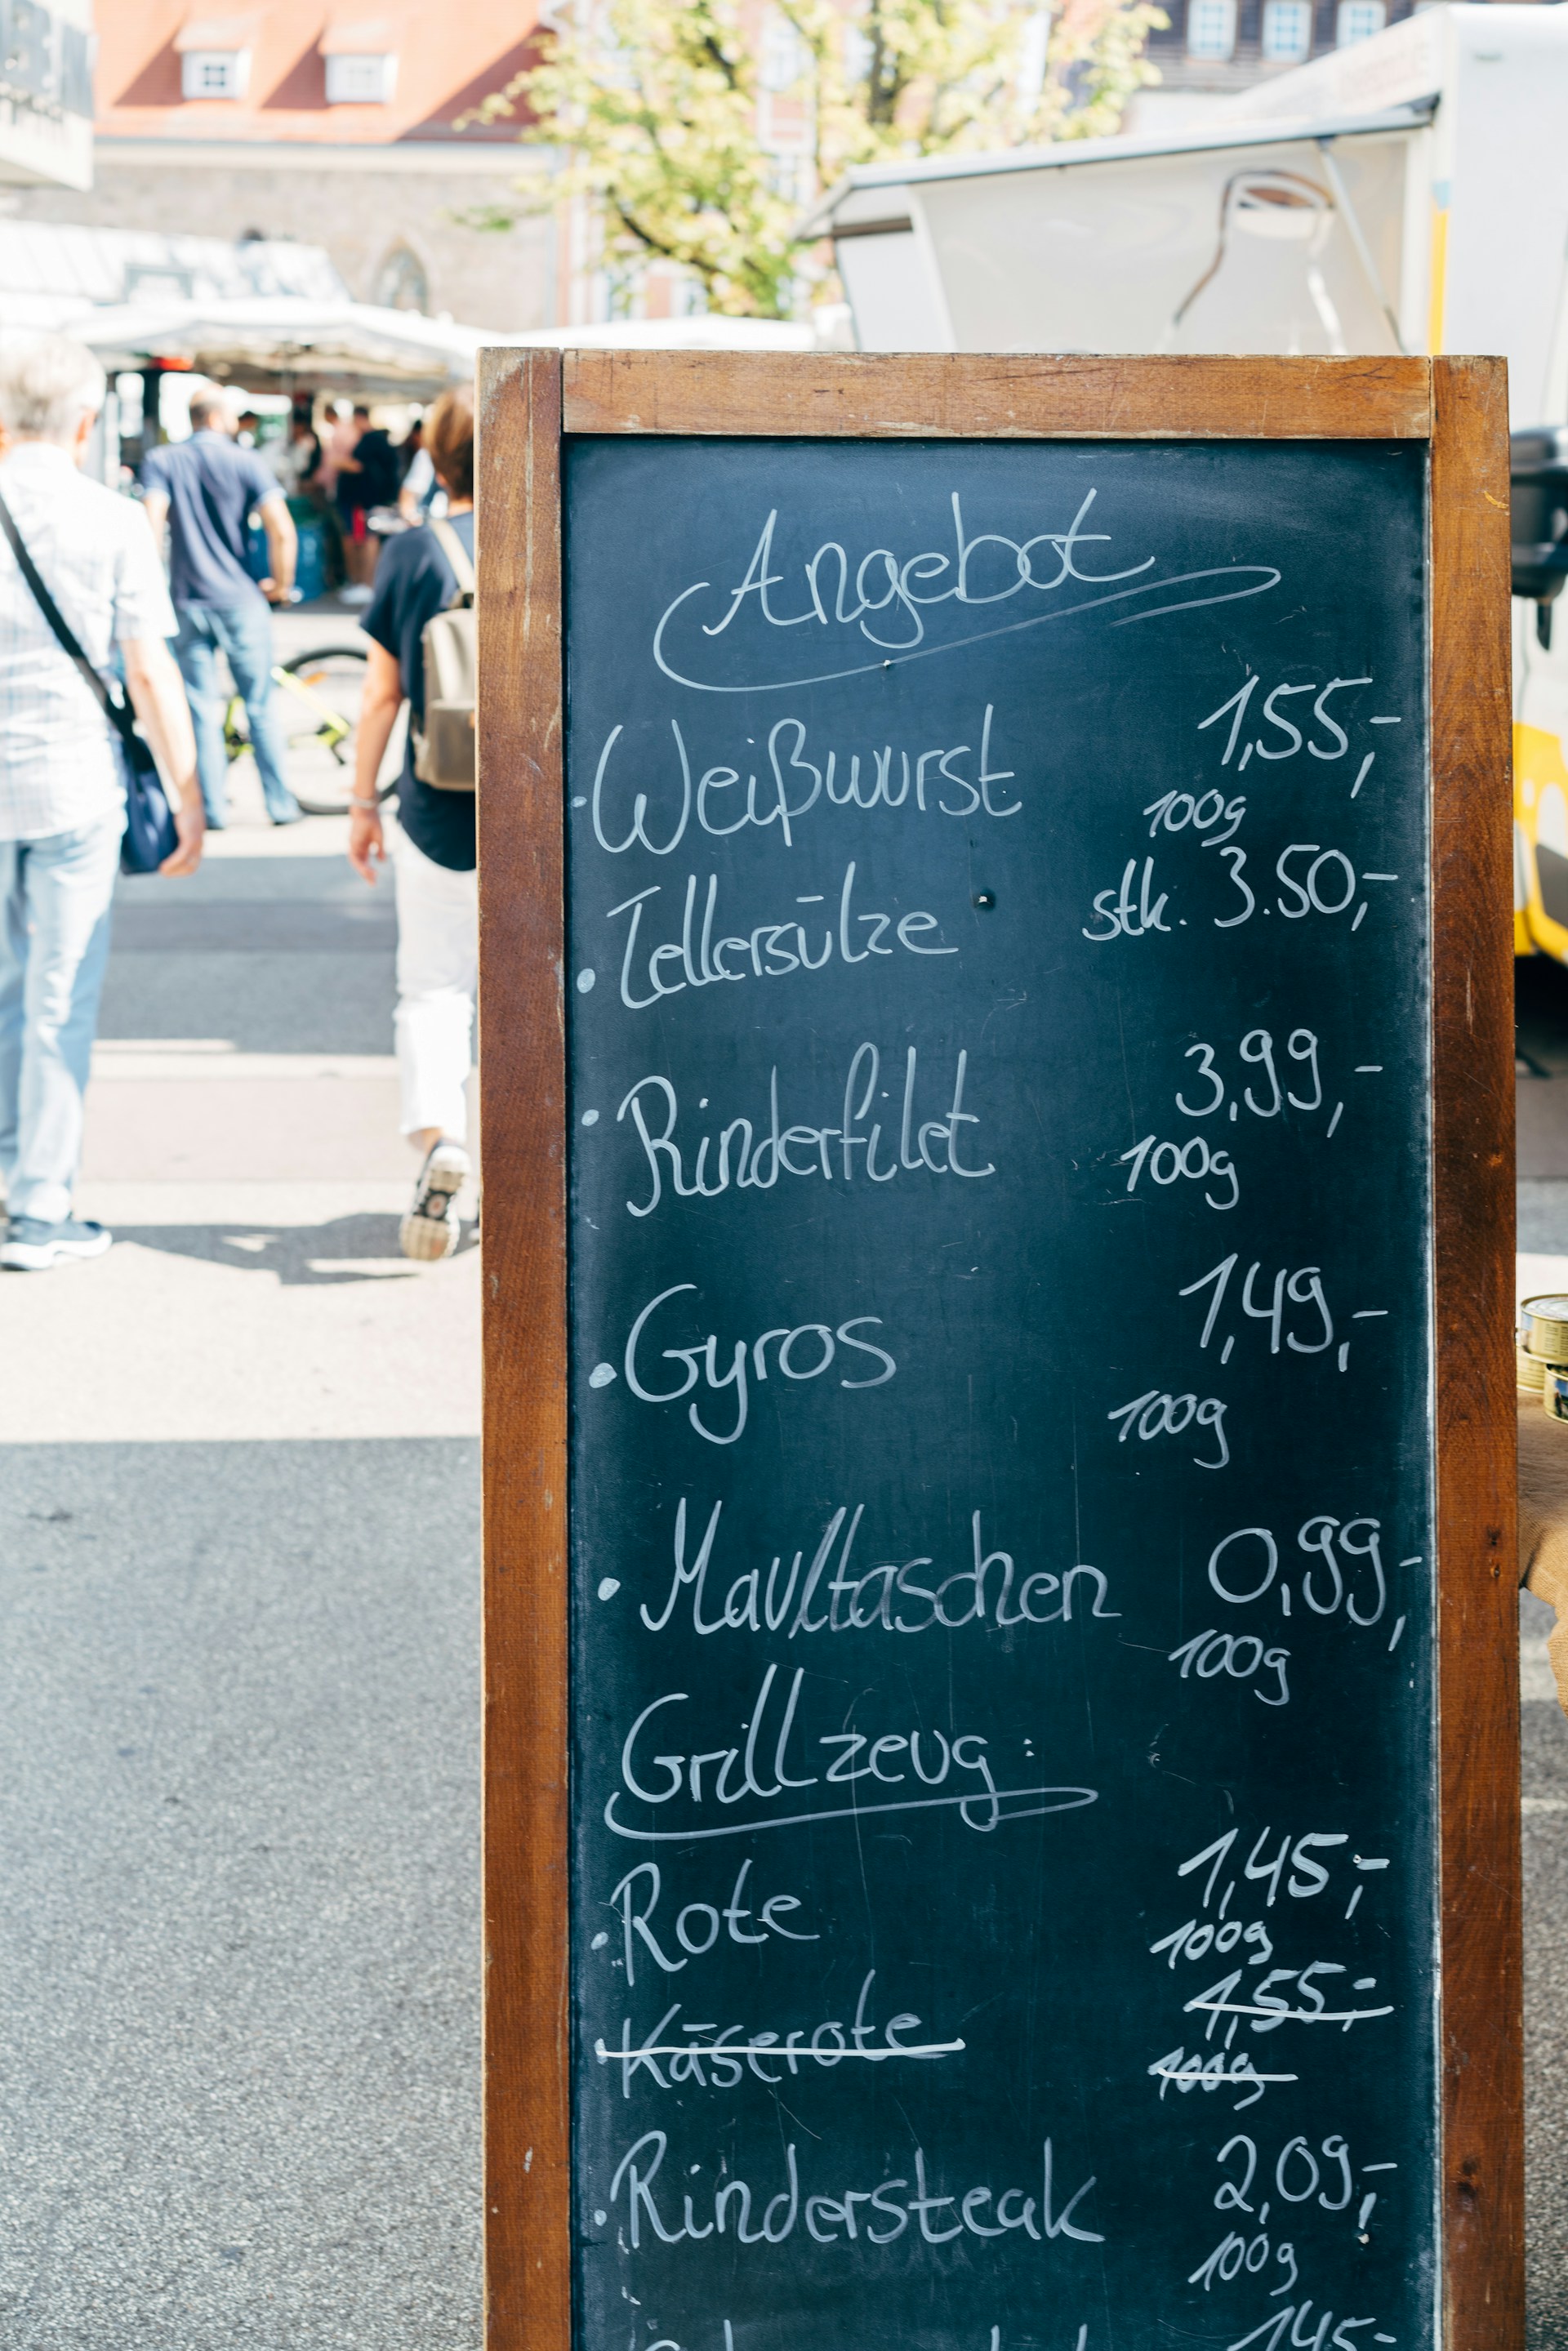 Angebot
· Weißwurst 1,55,-
100g
• Tellersülze stk. 3.50,-
• Rinderfilet 3,99,-
100g
• Gyros 1,49,-
100g
• Maultaschen 0,99,-
100g
Grillzeug:
· Rote 1,45,-
100g
· Käserote 1,55,-
100g
· Rindersteak 2,09,-
100g
1,45,-